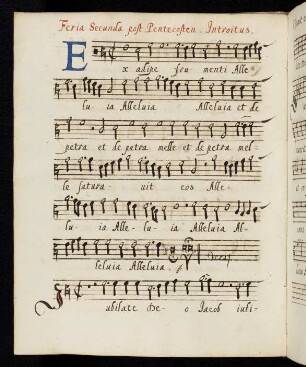 Feria Secunda post Pentecosten. Introitus.
Ex adipe fru menti Alle
lu ia Alleluia Alleluia et de
petra et de petra melle et de petra mel-
le satura- uit eos Alle-
lu- ia Alle- lu- ia Alleluia Al-
leluia Alleluia.
Iubilate De- o Jacob iubi-